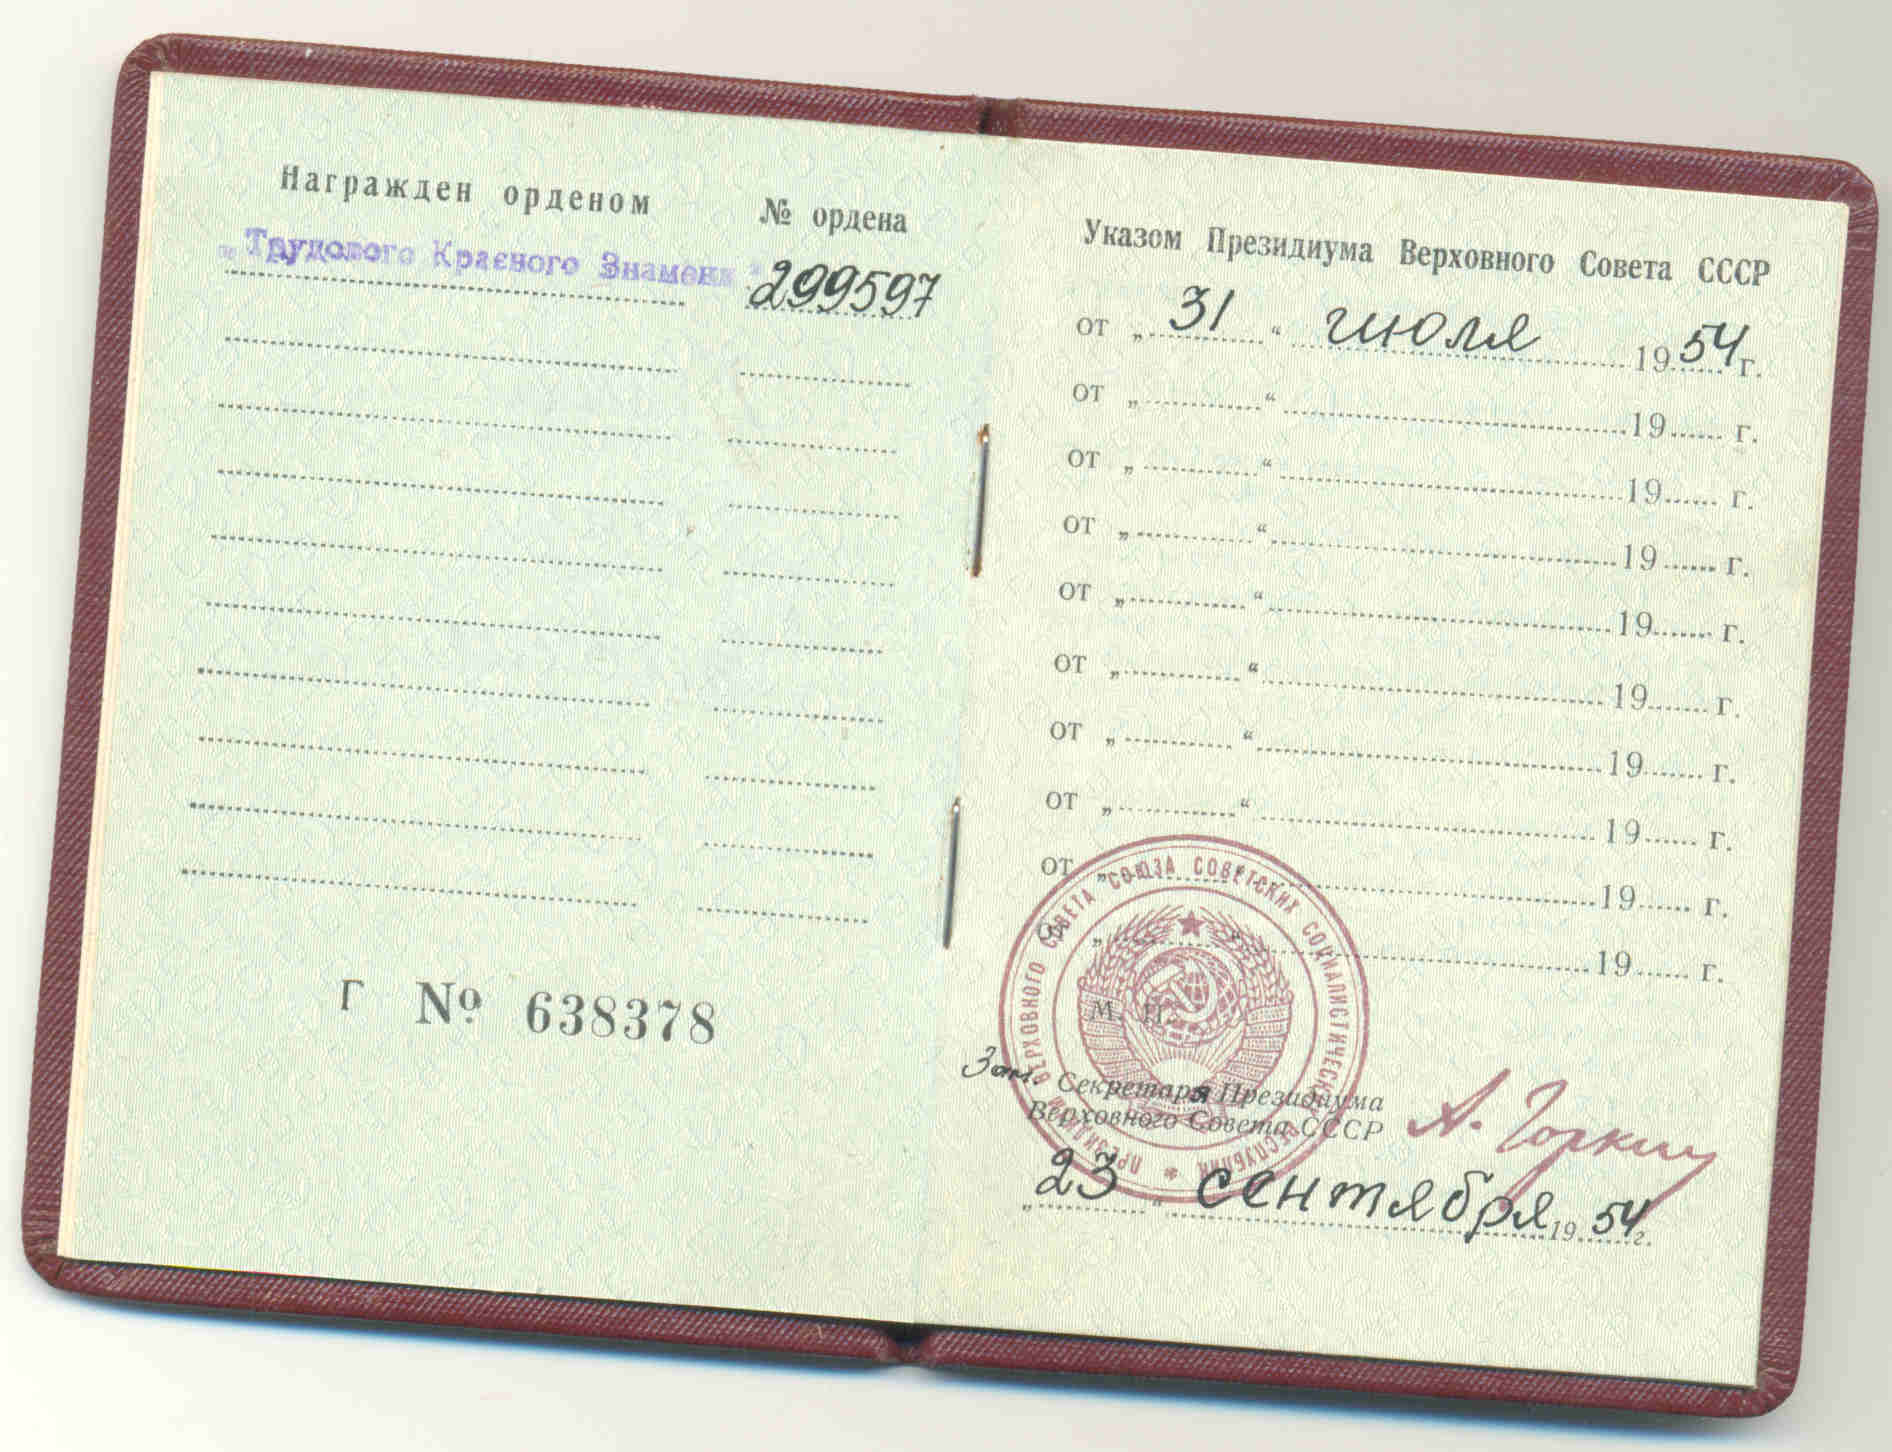 Награжден орденом № ордена
"Трудового Красного Знамени" 299597
Г № 638378
Указом Президиума Верховного Совета СССР
от „31“ июля 1954 г.
от „ “ 19 г.
от „ “ 19 г.
от „ “ 19 г.
от „ “ 19 г.
от „ “ 19 г.
от „ “ 19 г.
от „ “ 19 г.
от „ “ 19 г.
от „ “ 19 г.
ПРЕЗИДИУМ ВЕРХОВНОГО СОВЕТА СОЮЗА СОВЕТСКИХ СОЦИАЛИСТИЧЕСКИХ РЕСПУБЛИК
М. П.
Зам. Секретаря Президиума
Верховного Совета СССР А. Горкин
„23“ сентября 1954 г.